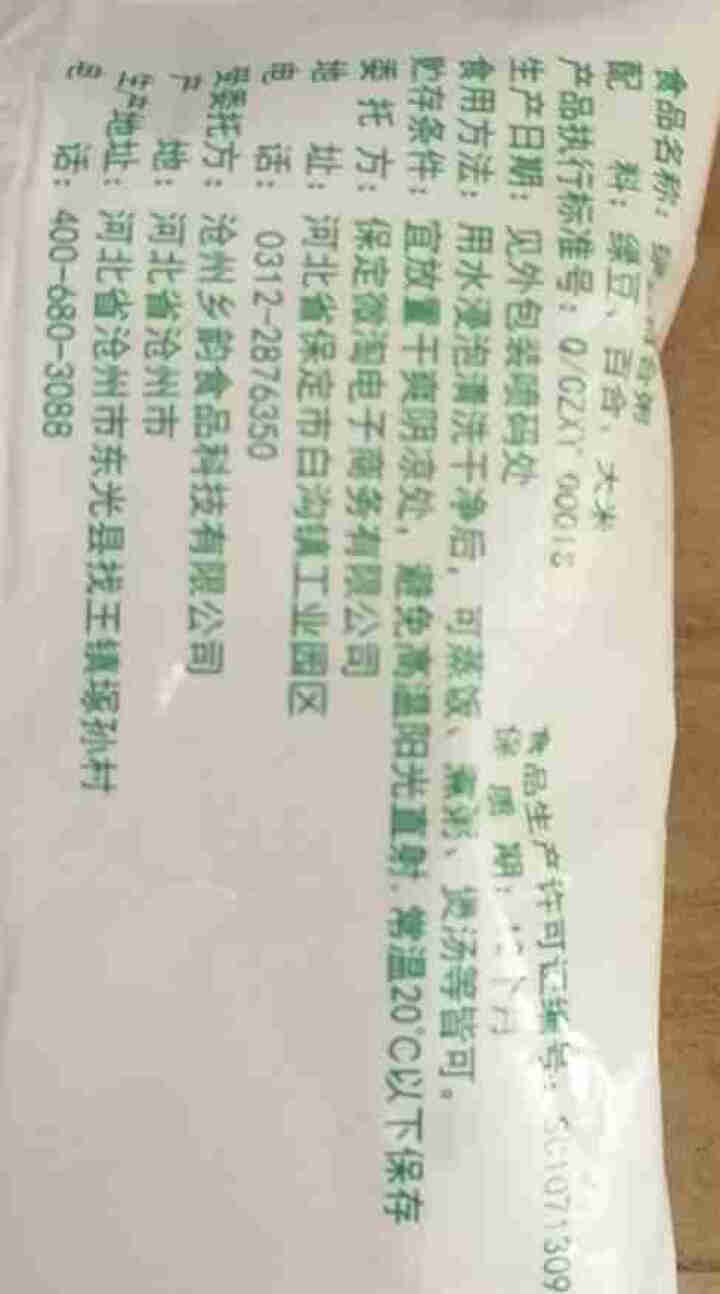 食品名称：
配料：绿豆、百合、大米
产品执行标准号：
食品生产许可证编号：SC1071309
生产日期：见外包装喷码处
保质期：
食用方法：用水浸泡清洗干净后，可蒸饭、熬粥、煲汤等皆可。
贮存条件：宜放置干爽阴凉处，避免高温阳光直射，常温20℃以下保存
委托方：保定微淘电子商务有限公司
地址：河北省保定市白沟镇工业园区
电话：0312-2876350
受委托方：沧州乡韵食品科技有限公司
产地：河北省沧州市
生产地址：河北省沧州市东光县找王镇塚孙村
电话：400-680-3088